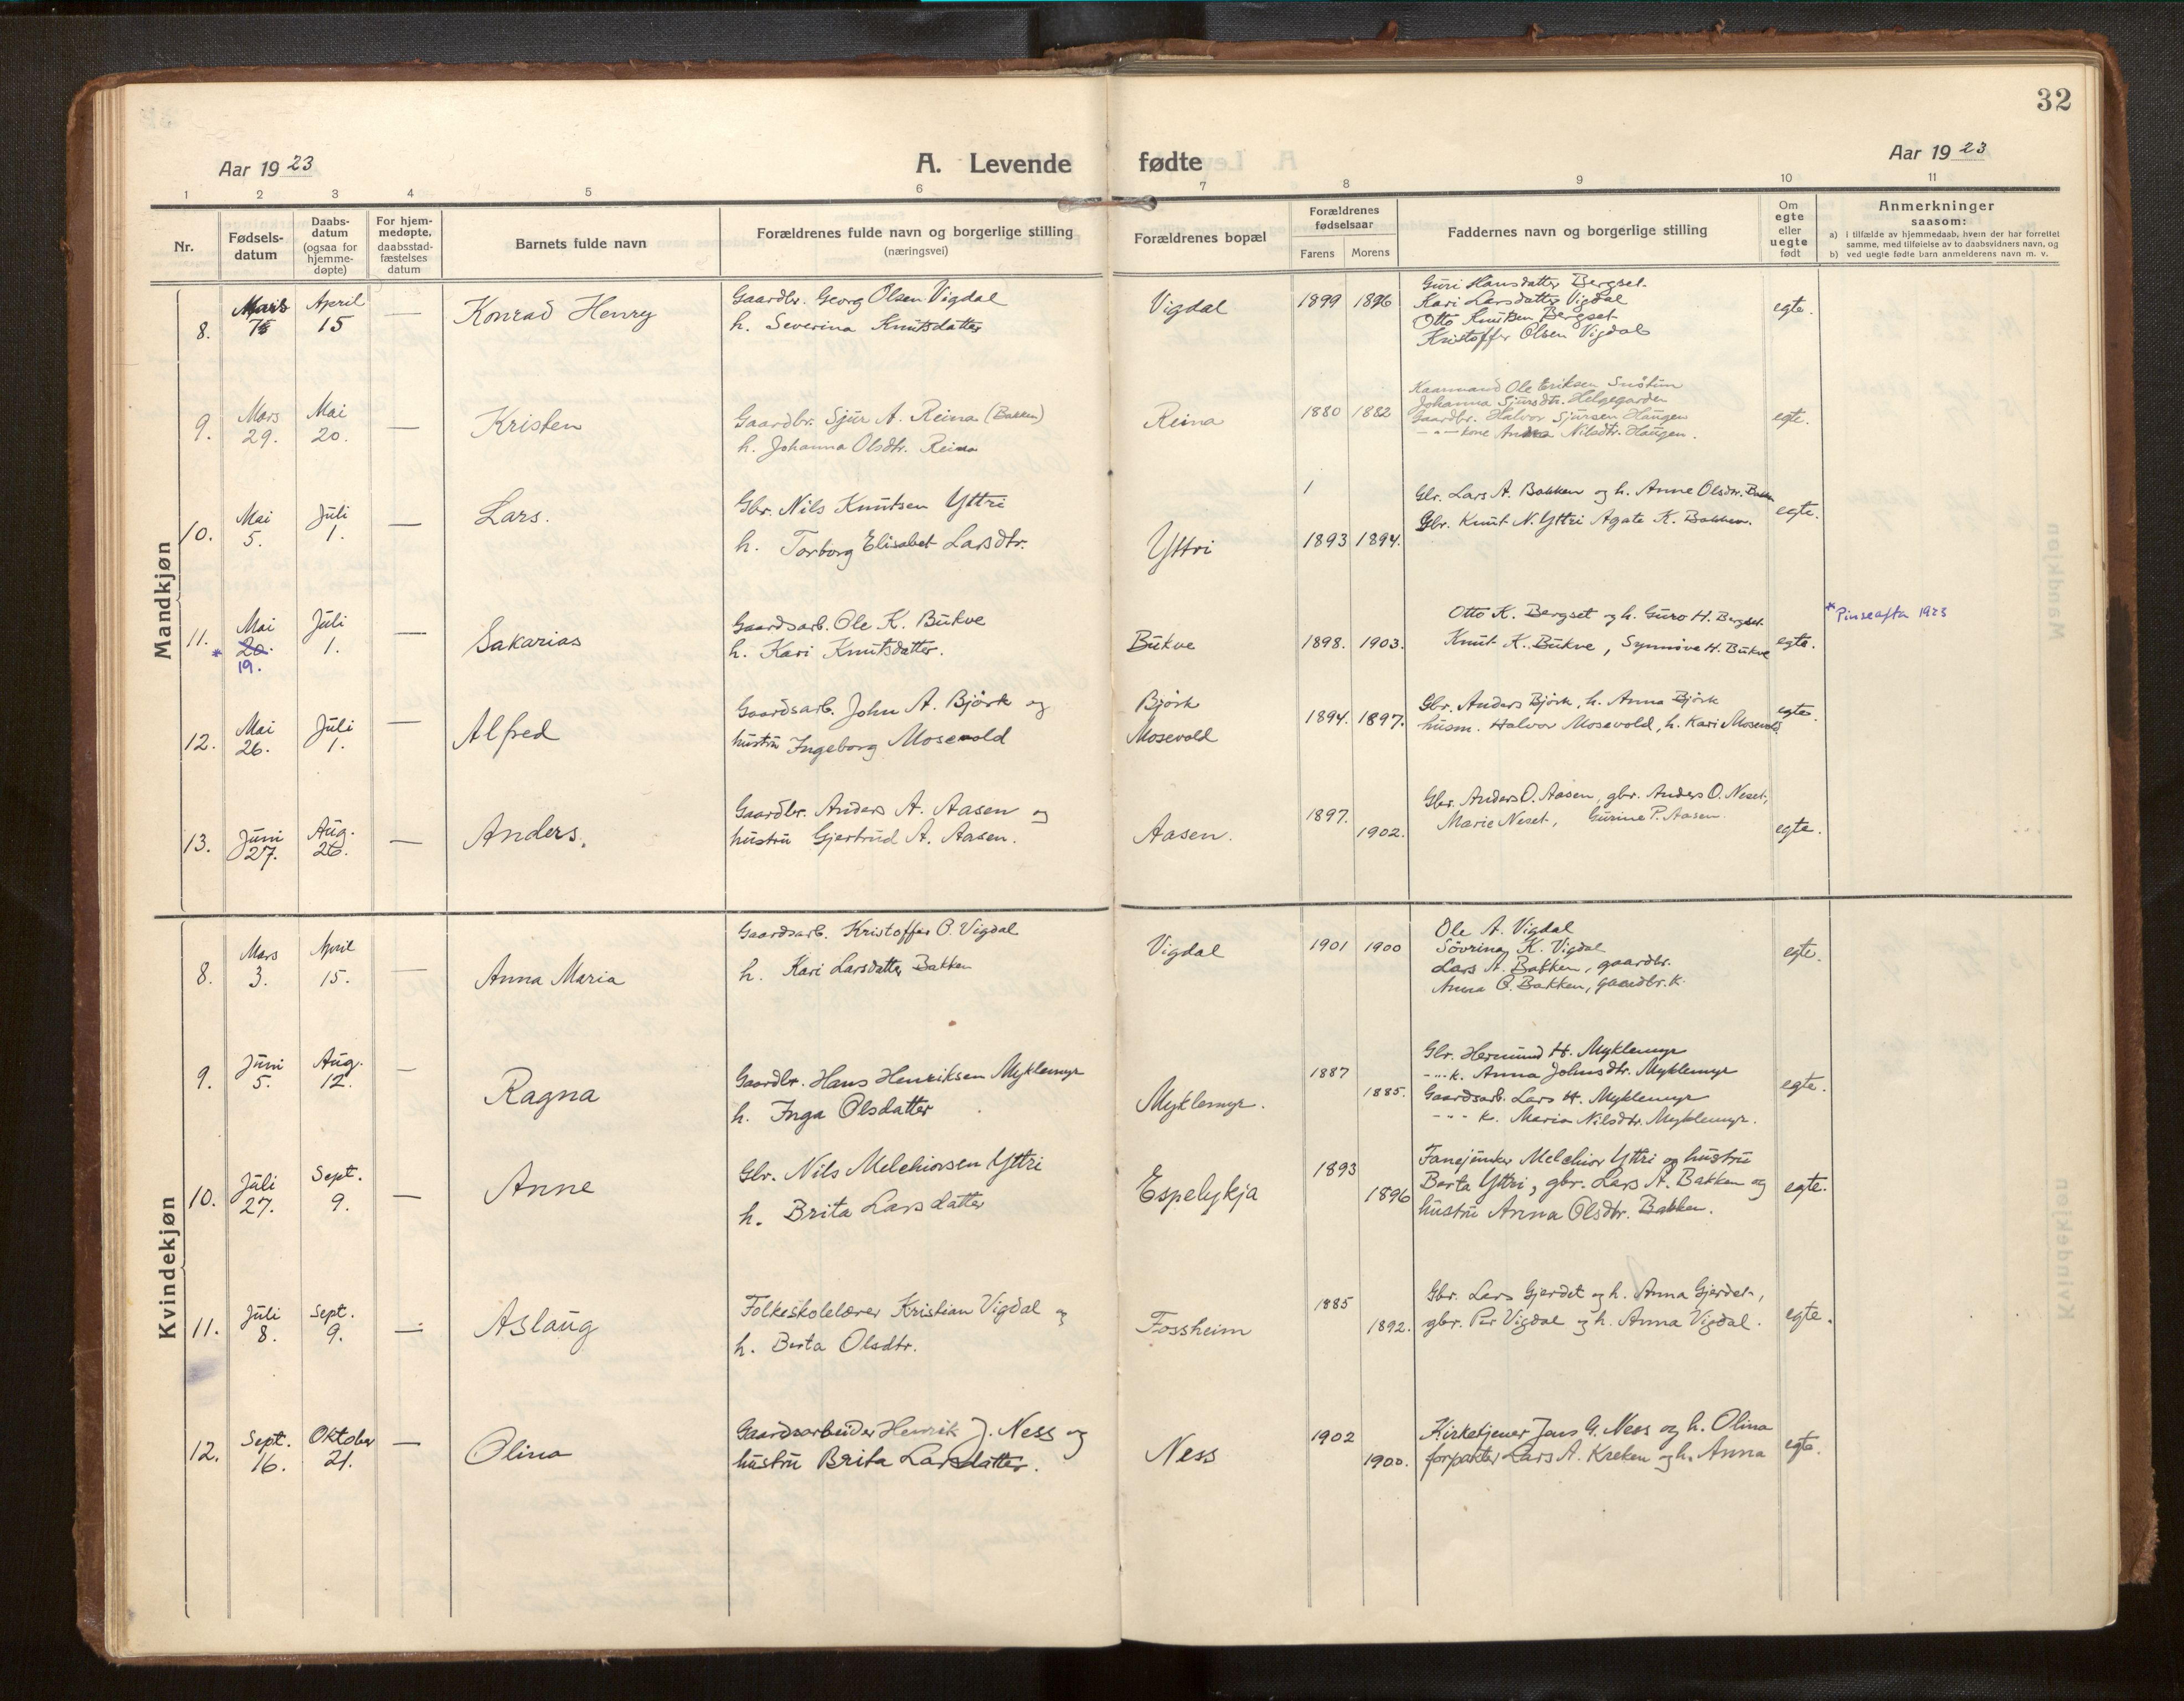 32
Aar 1923
A. Levende fødte
Aar 1923
1 2 3 4 5 6 7 8 9 10 11
Nr.
Fødsels-
datum
Daabs-
datum
(ogsaa for
hjemme-
døpte)
For hjem-
medøpte,
daabsstad-
fæstelses
datum
Barnets fulde navn
Forældrenes fulde navn og borgerlige stilling
(næringsvei)
Forældrenes bopæl
Forældrenes
fødselsaar
Farens Morens
Faddernes navn og borgerlige stilling
Om
egte
eller
uegte
født
Anmerkninger
saasom:
a) i tilfælde av hjemmedaab, hvem der har forrettet
samme, med tilføielse av to daabsvidners navn, og
b) ved uegte fødte barn anmelderens navn m. v.
Mandkjøn
8.
Mars
April
15
—
Konrad Henry
Gaardbr. Georg Olsen Vigdal
h. Severina Knutsdatter
Vigdal
1899 1896
Guri Hansdatter Bergset
Kari Larsdatter Vigdal
Otto Knutsen Bergset
Kristoffer Olsen Vigdal
egte.
9.
Mars
29.
Mai
20.
—
Kristen
Gaardbr. Sjur A. Reina (Bakken)
h. Johanna Olsdtr. Reina
Reina
1880 1882
Kaarmand Ole Eriksen Snötun
Johanna Sjursdtr. Helgegarden
Gaardbr. Halvor Sjursen Haugen
-"- kone Nilsdtr. Haugen.
egte.
10.
Mai
5.
Juli
1.
—
Lars.
Gbr. Nils Knutsen Yttri
h. Torborg Elisabet Larsdtr.
Yttri
1
1893 1894.
Gbr. Lars A. Bakken og h. Anne Olsdtr. Bakken
Gbr. Knut N. Yttri Agate K. Bakken.
egte.
11.
Mai
* 20.
19.
Juli
1.
—
Sakarias
Gaardsarb. Ole K. Bukve
h. Kari Knutsdatter.
Bukve
1898. 1903.
Otto K. Bergset og h. Guro H. Bergset.
Knut K. Bukve, Synnöve H. Bukve
egte.
* Pinseafta 1923
12.
Mai
26.
Juli
1.
—
Alfred
Gaardsarb. John A. Björk og
hustru Ingeborg Mosevold
Björk
Mosevold
1894. 1897.
Gbr. Anders Björk, h. Anna Björk
husm. Halvor Mosevold, h. Kari Mosevold
egte.
13.
Juni
27.
Aug.
26.
—
Anders.
Gaardbr. Anders A. Aasen og
hustru Gjertrud A. Aasen.
Aasen.
1897.
1902.
Gbr. Anders O. Aasen, gbr. Anders O. Neset,
Marie Neset, Gurine P. Aasen.
egte.
Kvindekjøn
8.
Mars
3.
April
15.
—
Anna Maria
Gaardsarb. Kristoffer O. Vigdal
h. Kari Larsdatter Bakken
Vigdal
1901 1900
Ole A. Vigdal
Sövrina K. Vigdal
Lars A. Bakken, gaardbr.
Anna O. Bakken, gaardbr. k.
egte.
9.
Juni
5.
Aug.
12.
—
Ragna
Gaardbr. Hans Henriksen Myklemyr
h. Inga Olsdatter
Myklemyr.
1887
1885.
Gbr. Hermund H. Myklemyr
-"- k. Anna Johnsdtr. Myklemyr
Gaardsarb. Lars H. Myklemyr
-"- k. Maria Nilsdtr. Myklemyr.
egte.
10.
Juli
27.
Sept.
9.
—
Anne
Gbr. Nils Melchiorsen Yttri
h. Brita Larsdatter
Espelykja
1893
1896
Fanejunker Melchior Yttri og hustru
Berta Yttri, gbr. Lars A. Bakken og
hustru Anna Olsdtr. Bakken.
egte.
11.
Juli
8.
Sept.
9.
—
Aslaug
Folkeskolelærer Kristian Vigdal og
h. Berta Olsdtr.
Fossheim
1885
1892.
Gbr. Lars Gjerdet og h. Anna Gjerdet,
gbr. Per Vigdal og h. Anna Vigdal.
egte.
12.
Sept.
16.
Oktober
21.
—
Olina
Gaardsarbeider Henrik J. Ness og
hustru Brita Larsdatter.
Ness
1902
1900.
Kirketjener Jens G. Ness og h. Olina
forpakter Lars A. Kreken og h. Anna
egte.